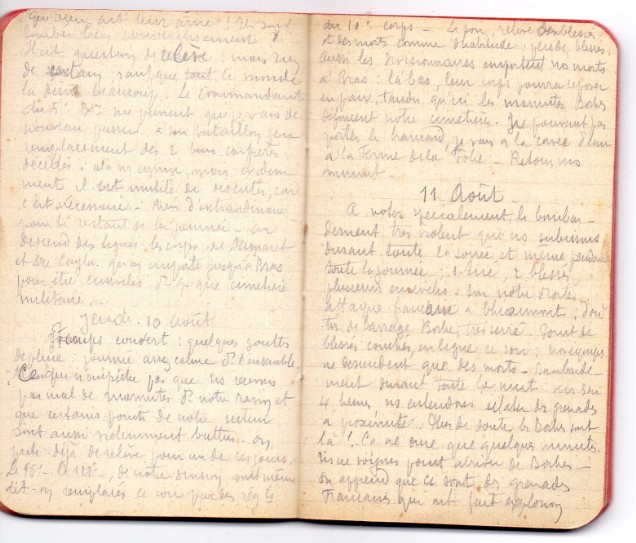 que Dieu ait leur âme ! Ils sont
tombés très
Il est question de relève : mais rien
de certain, sauf que tout le monde
la désire beaucoup. Le Commandant
du 5e Bon me prévient que je vais de
nouveau passer à son bataillon, en
remplacement des 2 bons
décédés : cela m'ennuie, mais
ment il est inutile de discuter, car
c'est nécessaire. Rien d'extraordinaire
pour le restant de la journée. On
descend des lignes les corps de
et de Cayla, qu'on emporte jusqu'à Bras
pour être enterrés ds q-que cimetière
militaire.
Jeudi. 10 août
Temps couvert : quelques gouttes
de pluie : journée assez calme ds l'ensemble.
Ce qui n'empêche pas que ns recevons
pas mal de marmites ds notre ravin et
que certains points de notre secteur
sont aussi violemment battus. On
parle déjà de relève pour un de ces jours.
Le 96e - Le 122e -, de notre division sont même
dit-on remplacés ce soir par des régts
du 10e corps - Le soir, relève des blessés
et des morts comme d'habitude ; blessés.
Aussi les divisionnaires emportent nos morts
à Bras : là bas, leur corps pourra reposer
en paix, tandis qu'ici les marmites Boches
notre cimetière. Ne pouvant pas
porter le brancard, je vais à la corvée d'eau
à la Ferme de la Folie - Retour vers
minuit -
11 Août
A noter spécialement le bombar-
dement très violent que ns subissons
durant toute la soirée et même pendant
toute la journée : 1 tué, 2 blessés,
plusieurs ensevelis. Sur notre droite
attaque française à Fleury, d'où
tir de barrage Boche, très serré. Point de
blessés couchés, en ligne ce soir : nos équipes
ne descendent que des morts - Bombarde
ment durant toute la nuit : vers
4 heures, ns entendons éclater des grenades
à proximité. Plus de doute les Boches sont
là !. Ca ne dure que quelques minutes.
Ns ne voyons point arriver de Boches -
On apprend que ce sont des grenades
Françaises qui ont fait explosion